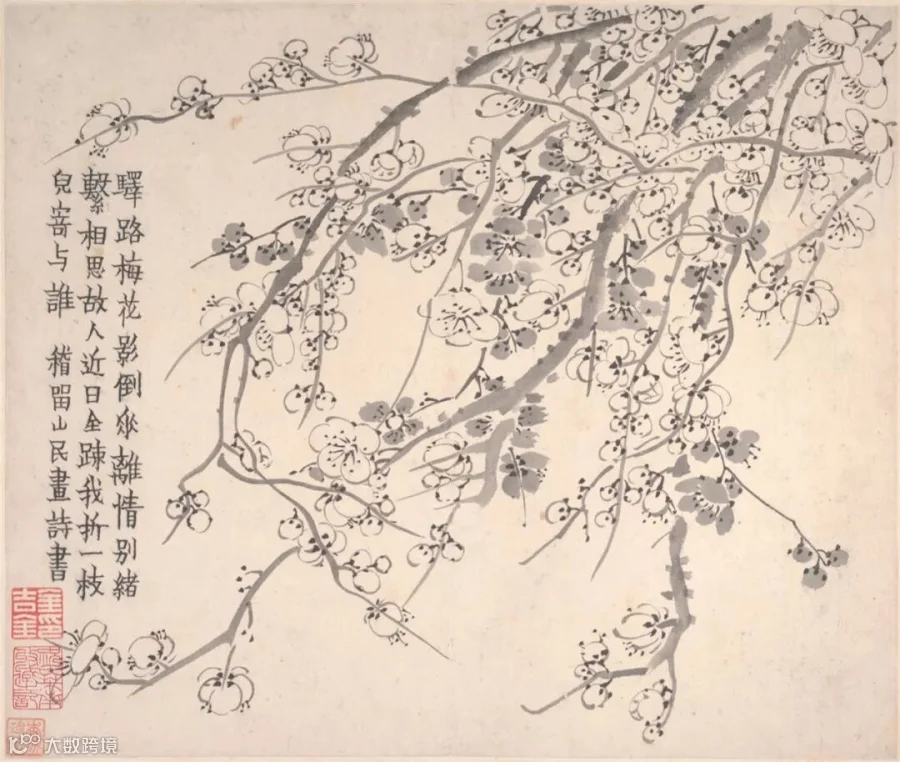 驛路梅花影倒垂離情別緒
繫相思故人近日全疎我折一枝
兒寄与誰 稽留山民畫詩書
金吉金印
大数跨境